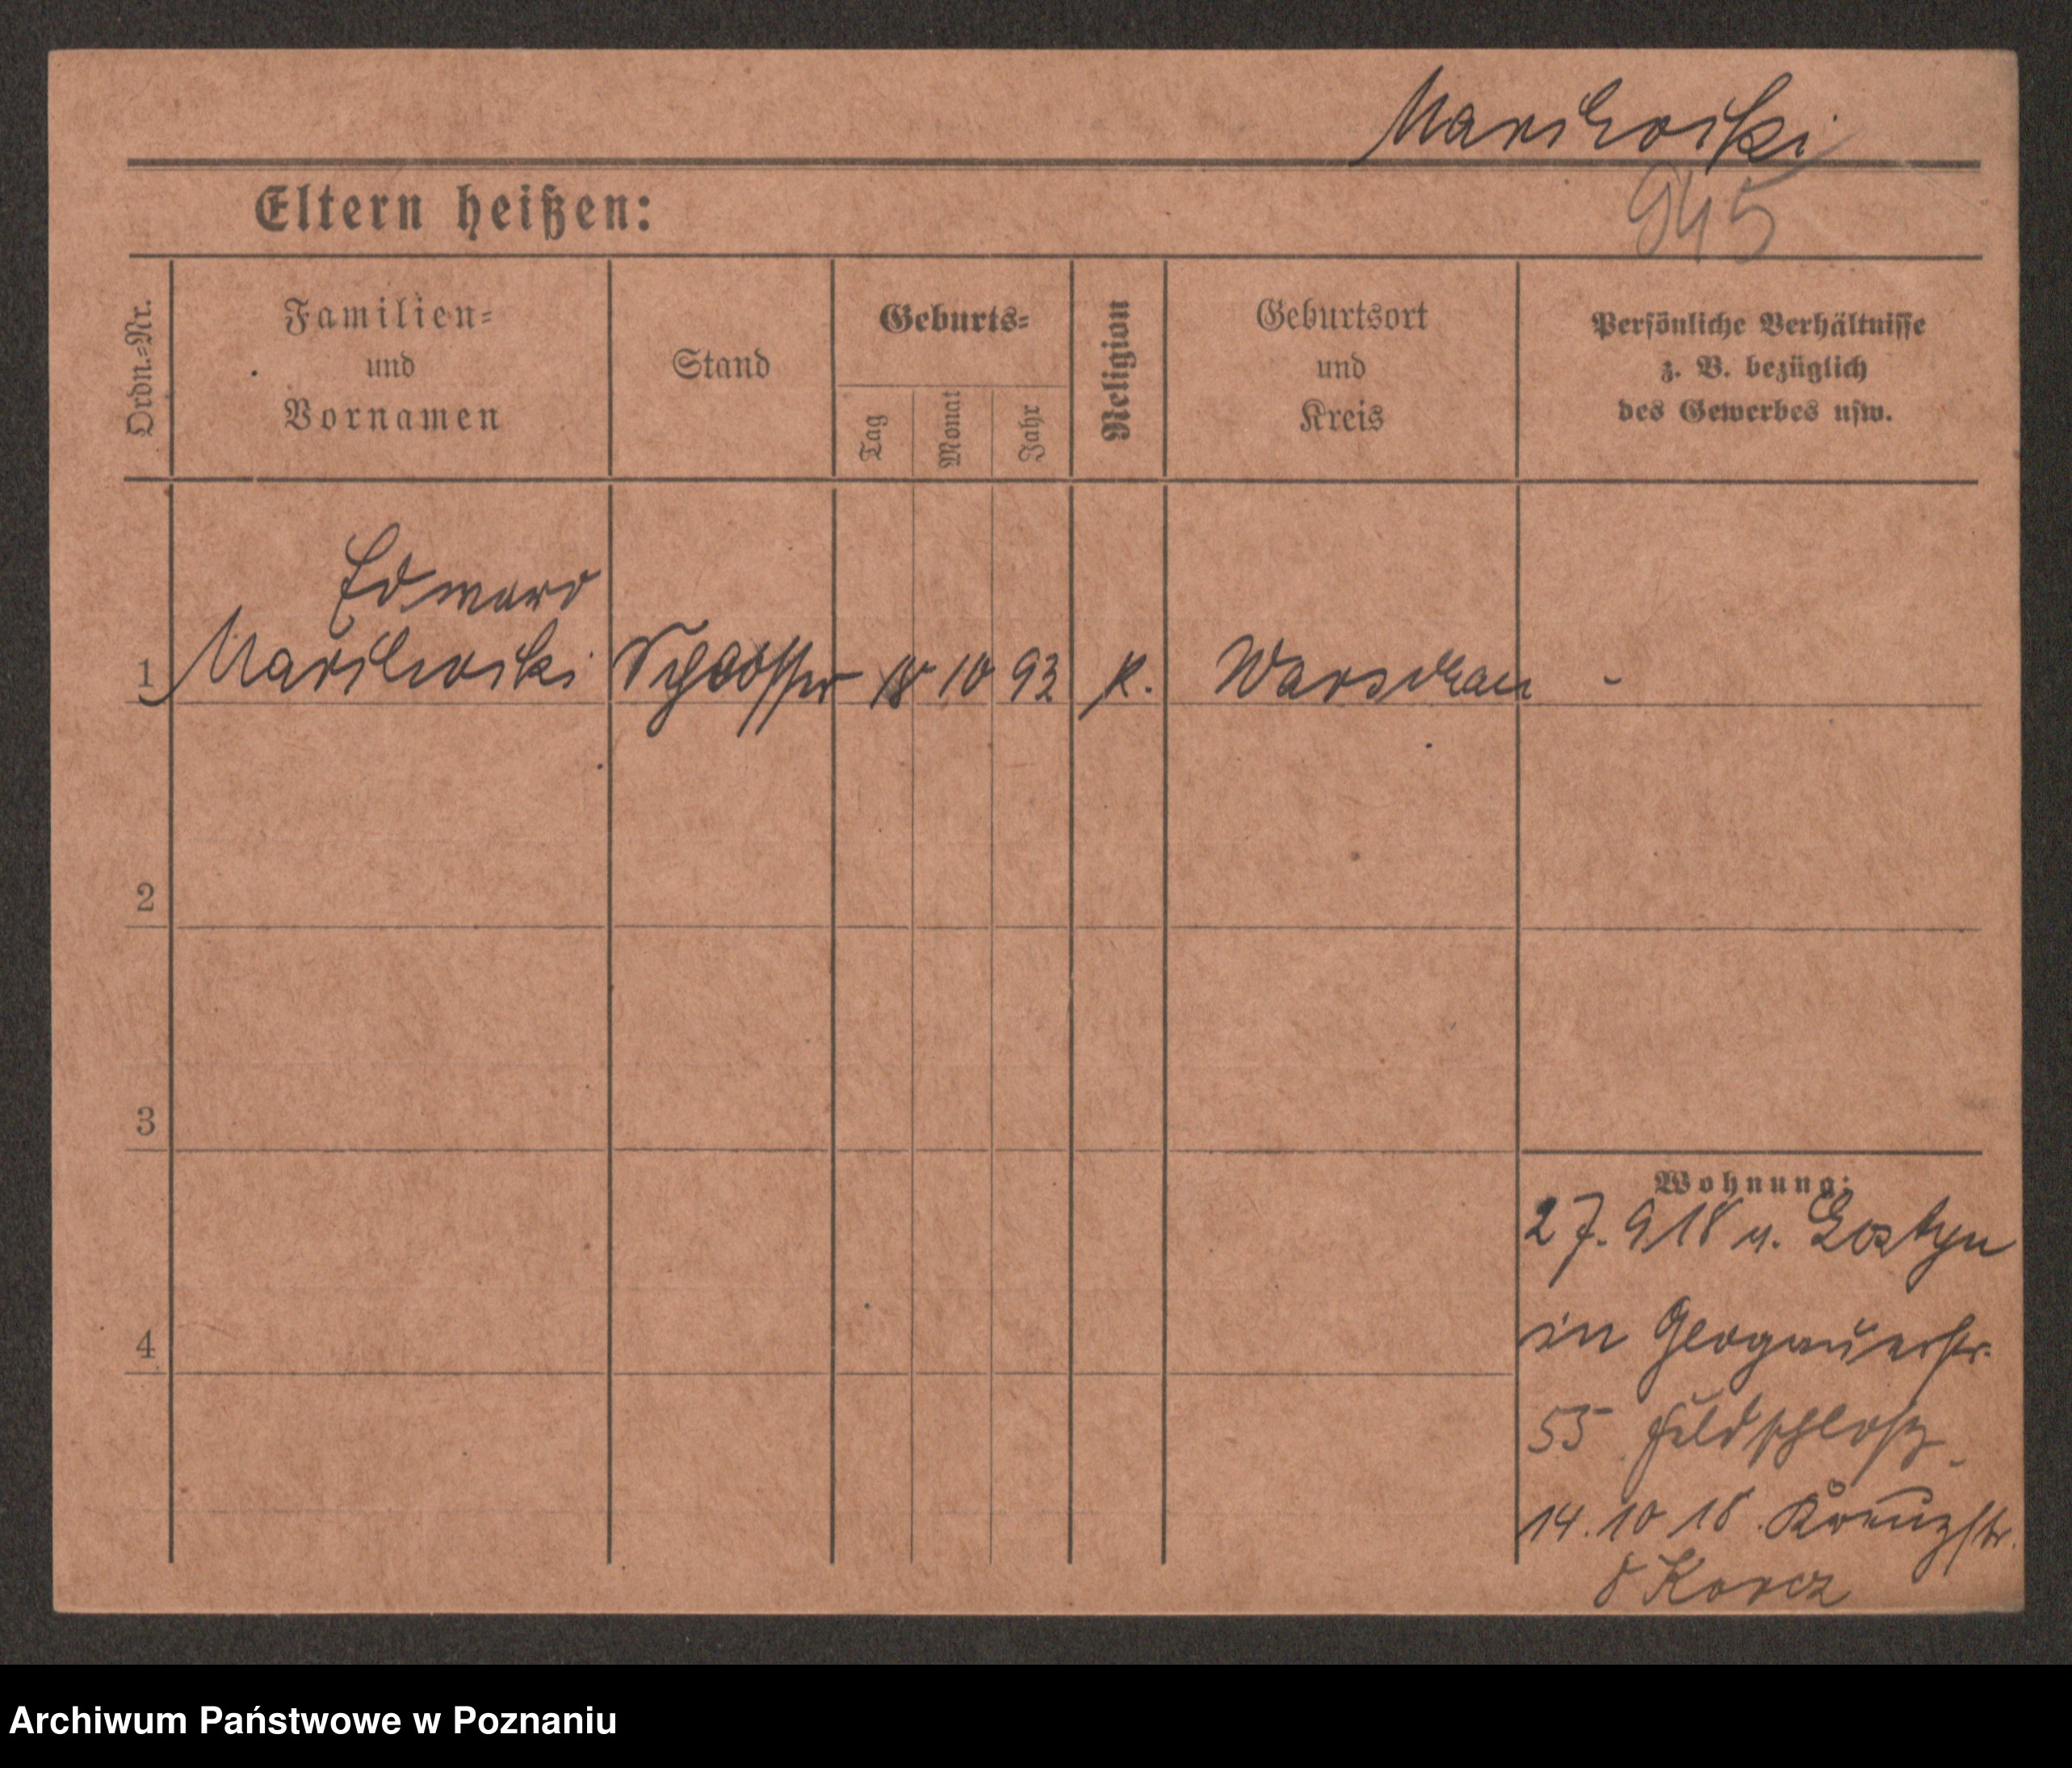 945
Eltern heißen:
Ordn.-Nr.
Familien-
und
Vornamen
Stand
Geburts-
Tag
Monat
Jahr
Religion
Geburtsort
und
Kreis
Persönliche Verhältnisse
z. B. bezüglich
des Gewerbes usw.
Edward
1 Schlosser 18 10 93 K. Warschau -
2
3
4
Wohnung:
27. 9 18 v. Gostyn
in Glogauerstr.
55 Feldschloß
14. 10 18. Kreuzstr.
8 Korcz
Archiwum Państwowe w Poznaniu